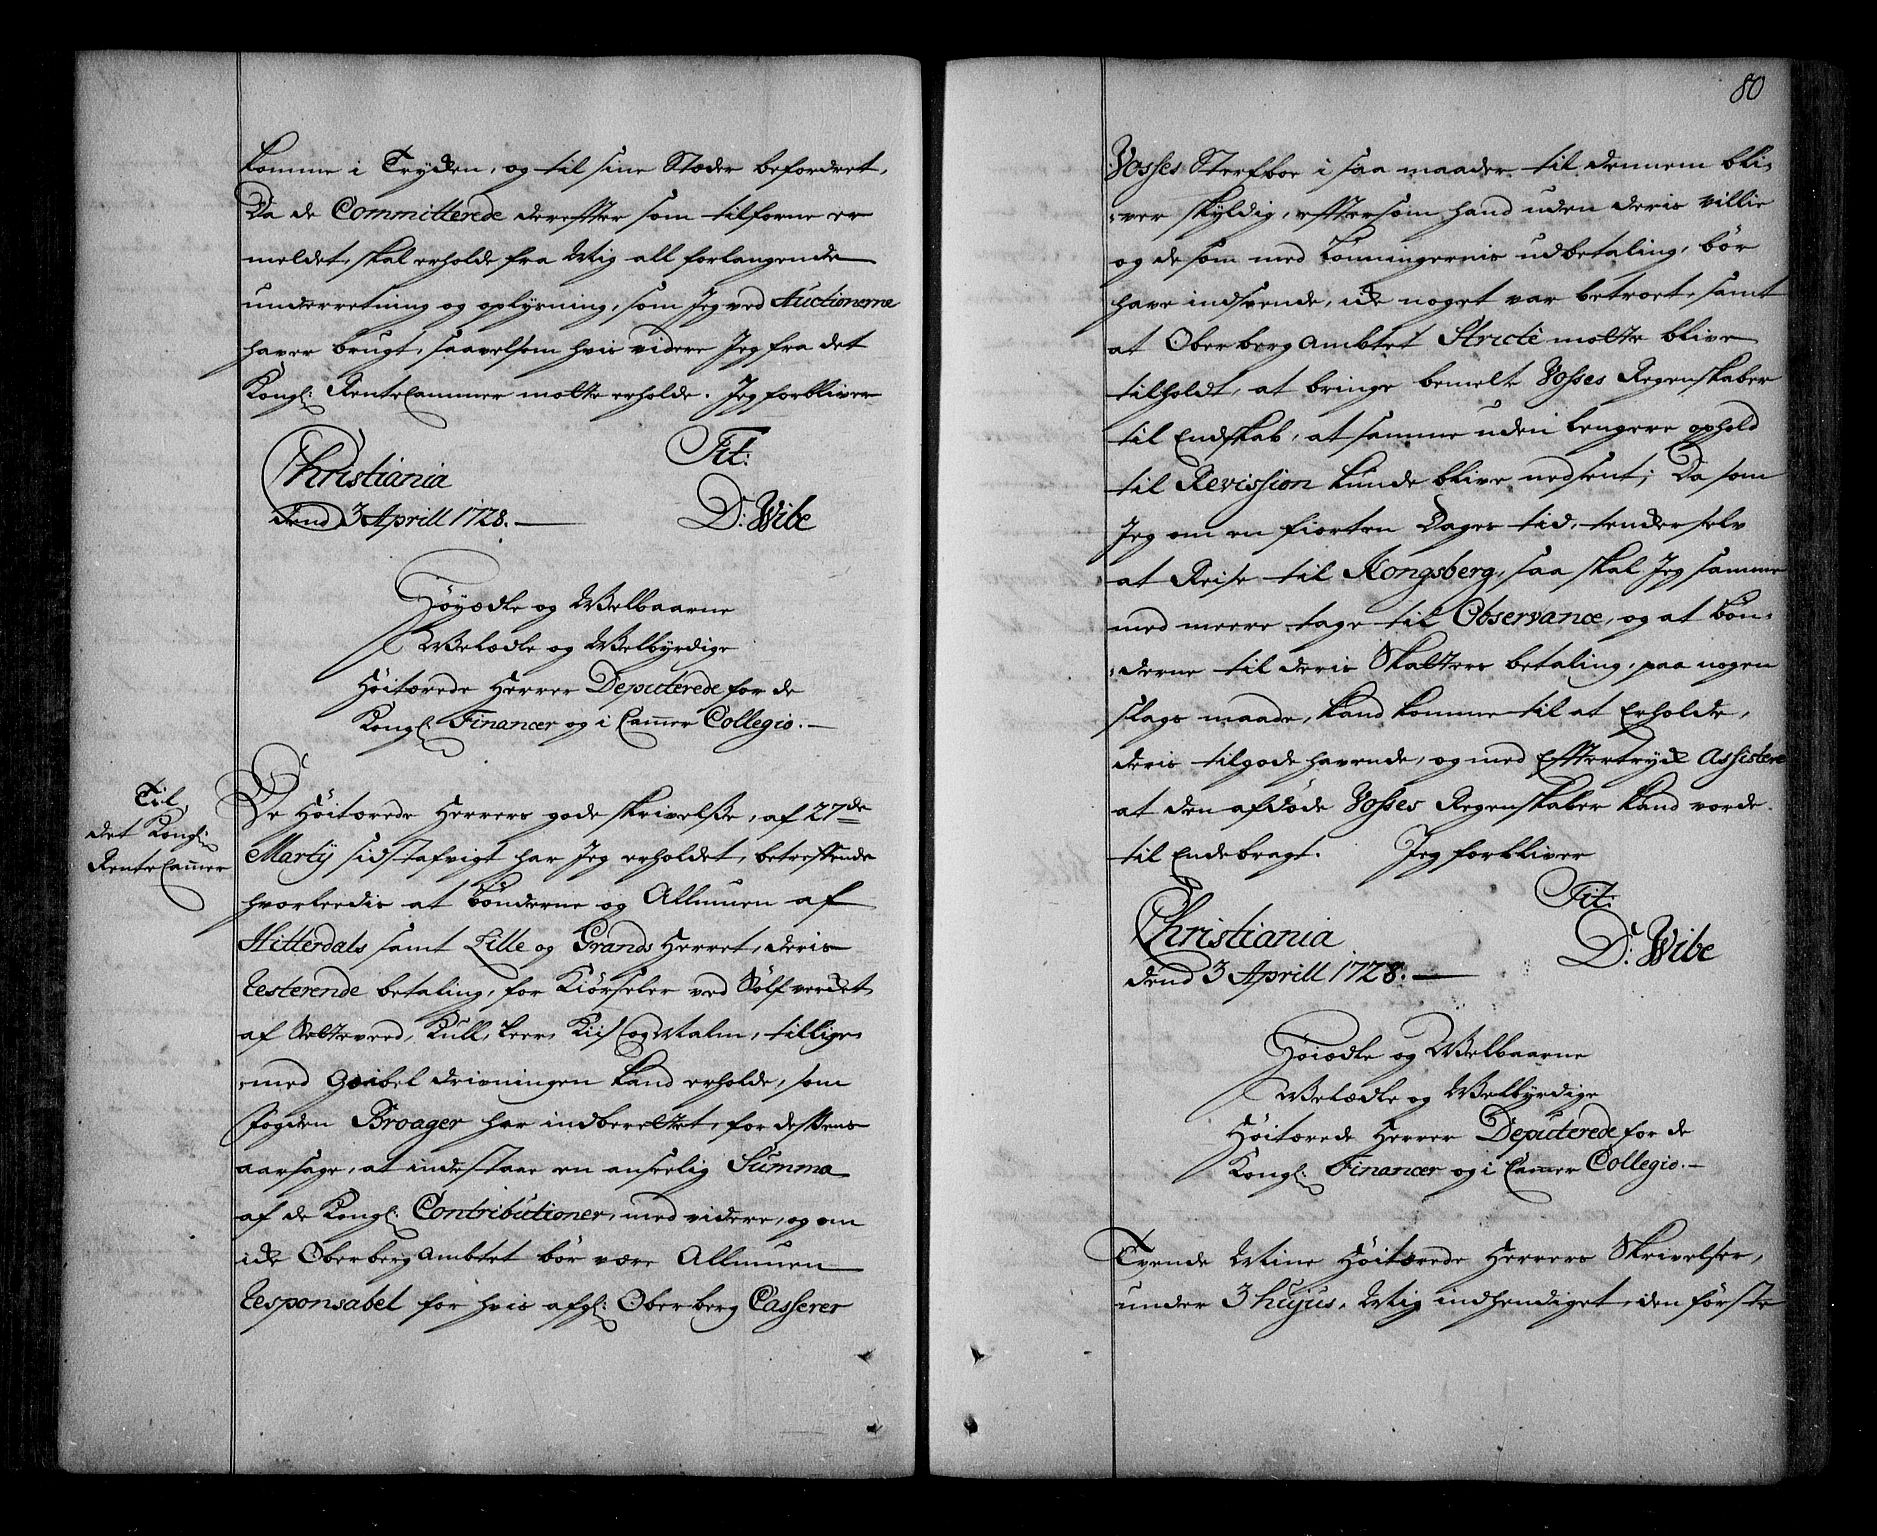 komme i Tryden, og til sine Stæder befordret,
Da de Committerede derefter som tilforne er
meldet, skal erholde fra Mig all forlangende
underretning og oplysning, som Jeg ved Auctionerne
haver brugt, saavelsom hvis videre Jeg fra det
Kongl: RenteCammer motte erholde. Jeg forbliver
Christiania Tit:
dend 3 Aprill 1728. D: Wibe
Høyædle og Welbaarne
Welædle og Welbyrdige
Høitærede Herrer Deputerede for de
Kongl: Financer og i Camer Collegio.
Til
det Kongl:
RenteCamer
De Høitærede Herrers gode skrivelse, af 27de
Martij sidstafvigt har Jeg erholdet, betreffende
hvorledis at Bønderne og Allmuen af
Hitterdals samt Lille og Grands Herret, deris
resterende betaling, for Kiørseler ved Sølfverdet
af Setteveed, Kull, Leer, Kiis og Malm, tillige
med Geibel drivningen kand erholde, som
fogden Broager har indberettet, for dessens
aarsage, at indestaar en anseelig Summa
af de Kongl: Contributioner, med videre, og om
icke OberbergAmbtet bør være Allmuen
responsabel for hvis afgl: Oberberg Casserer
80
Vosses Sterfboe i saa maader til dennem bli-
ver skyldig, eftersom hand uden deris villie
og de som med Lønningernis udbetaling, bør
have indseende, icke noget var betroet, samt
at OberbergAmbtet Stricte motte blive
tilholdt, at bringe bemelte Vosses Regenskaber
til Endskab, at samme uden lengere ophold
til Revission kunde blive nedsent; Da som
Jeg om en fiorten Dages tid, tender selv
at Reise til Kongsberg, saa skal Jeg samme
med meere tage til Observance, og at Bøn-
derne til deris Skatters betaling, paa nogen
slags maade, kand komme til at Erholde,
deris tilgode havende, og med Eftertryck Assistere
at den afdøde Vosses Regenskaber kand vorde
til Ende bragt. Jeg forbliver
Christiania Tit:
dend 3 Aprill 1728. D: Wibe
Høiædle og Welbaarne
Welædle og Welbyrdige
Høitærede Herrer Deputerede for de
Kongl: Financer og i Camer Collegio.
Tvende Mine Høitærede Herrers Skrivelser,
under 3 hujus, Mig indhendiget, den første